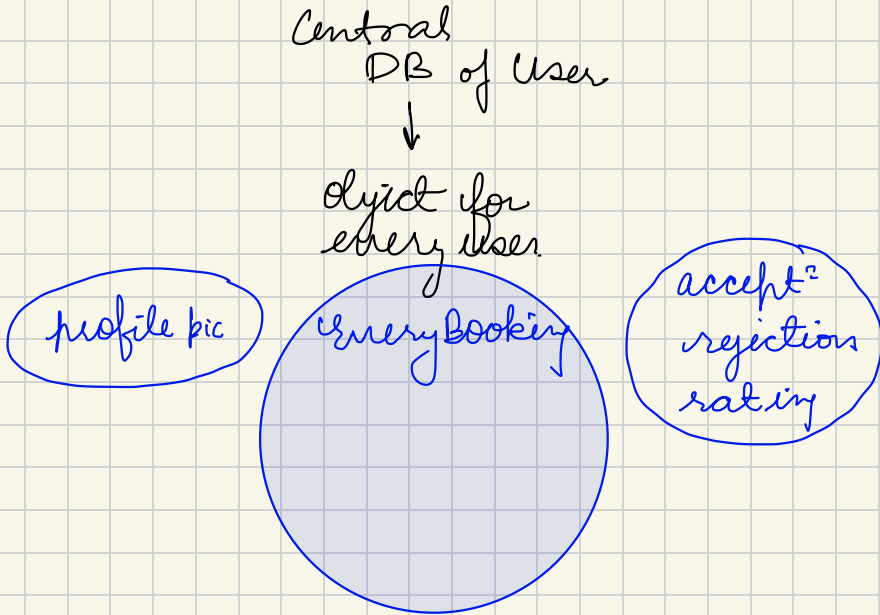 Central
DB of User
object for
every user.
profile pic
every Booking
accept²
rejection
rating